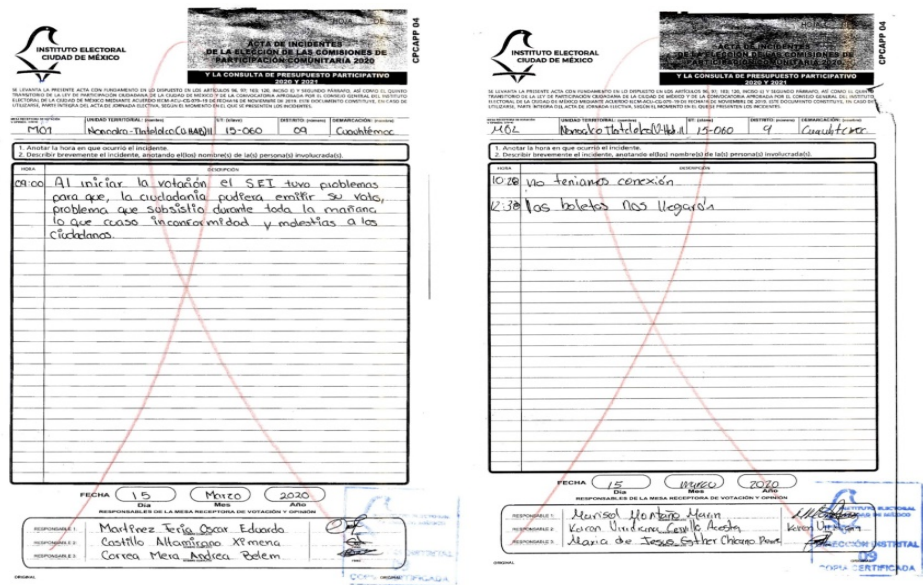 HOJA DE
INSTITUTO ELECTORAL
CIUDAD DE MÉXICO
ACTA DE INCIDENTES
DE LA ELECCIÓN DE LAS COMISIONES DE
PARTICIPACIÓN COMUNITARIA 2020
Y LA CONSULTA DE PRESUPUESTO PARTICIPATIVO
2020 Y 2021
CPCAPP 04
SE LEVANTA LA PRESENTE ACTA CON FUNDAMENTO EN LO DISPUESTO EN LOS ARTÍCULOS 96, 97, 103, 120, INCISO E) Y SEGUNDO PÁRRAFO, ASÍ COMO EL QUINTO
TRANSITORIO DE LA LEY DE PARTICIPACIÓN CIUDADANA DE LA CIUDAD DE MÉXICO Y DE LA CONVOCATORIA APROBADA POR EL CONSEJO GENERAL DEL INSTITUTO
ELECTORAL DE LA CIUDAD DE MÉXICO MEDIANTE ACUERDO IECM-ACU-CG-079-19 DE FECHA 16 DE NOVIEMBRE DE 2019. ESTE DOCUMENTO CONSTITUYE, EN CASO DE
UTILIZARSE, PARTE INTEGRA DEL ACTA DE JORNADA ELECTIVA, SEGÚN EL MOMENTO EN EL QUE SE PRESENTEN LOS INCIDENTES.
UNIDAD TERRITORIAL: (nombre) UT: (clave) DISTRITO: (número) DEMARCACIÓN: (nombre)
M01 Nonoalco-Tlatelolco (U HAB) II 15-060 09 Cuauhtémoc
1. Anotar la hora en que ocurrió el incidente.
2. Describir brevemente el incidente, anotando el(los) nombre(s) de la(s) persona(s) involucrada(s).
HORA DESCRIPCIÓN
09:00 Al iniciar la votación el SEI tuvo problemas
para que, la ciudadanía pudiera emitir su voto,
problema que subsistio durante toda la mañana
lo que causo inconformidad y molestias a los
Ciudadanos.
FECHA 15 Marzo 2020
Día Mes Año
RESPONSABLES DE LA MESA RECEPTORA DE VOTACIÓN Y OPINIÓN
RESPONSABLE 1: Martínez Tería Oscar Eduardo
RESPONSABLE 2: Castillo Altamirano Ximena
RESPONSABLE 3: Correa Mera Andrea Belem
ORIGINAL
COPIA CERTIFICADA
HOJA DE
INSTITUTO ELECTORAL
CIUDAD DE MÉXICO
ACTA DE INCIDENTES
DE LA ELECCIÓN DE LAS COMISIONES DE
PARTICIPACIÓN COMUNITARIA 2020
Y LA CONSULTA DE PRESUPUESTO PARTICIPATIVO
2020 Y 2021
CPCAPP 04
SE LEVANTA LA PRESENTE ACTA CON FUNDAMENTO EN LO DISPUESTO EN LOS ARTÍCULOS 96, 97, 103, 120, INCISO E) Y SEGUNDO PÁRRAFO, ASÍ COMO EL QUINTO
TRANSITORIO DE LA LEY DE PARTICIPACIÓN CIUDADANA DE LA CIUDAD DE MÉXICO Y DE LA CONVOCATORIA APROBADA POR EL CONSEJO GENERAL DEL INSTITUTO
ELECTORAL DE LA CIUDAD DE MÉXICO MEDIANTE ACUERDO IECM-ACU-CG-079-19 DE FECHA 16 DE NOVIEMBRE DE 2019. ESTE DOCUMENTO CONSTITUYE, EN CASO DE
UTILIZARSE, PARTE INTEGRA DEL ACTA DE JORNADA ELECTIVA, SEGÚN EL MOMENTO EN EL QUE SE PRESENTEN LOS INCIDENTES.
UNIDAD TERRITORIAL: (nombre) UT: (clave) DISTRITO: (número) DEMARCACIÓN: (nombre)
Nonoalco Tlatelolco (U Hab II 15-060 9 Cuauhtemoc
1. Anotar la hora en que ocurrió el incidente.
2. Describir brevemente el incidente, anotando el(los) nombre(s) de la(s) persona(s) involucrada(s).
HORA DESCRIPCIÓN
10:20 no teniamos conexión
12:30 las boletas nos llegarón
FECHA 15 marzo 2020
Día Mes Año
RESPONSABLES DE LA MESA RECEPTORA DE VOTACIÓN Y OPINIÓN
RESPONSABLE 1: Marisol Montaño Marin
RESPONSABLE 2: Karen Viridiana Acosta
RESPONSABLE 3: Maria de Jesus Esther Chicano
ORIGINAL
DIRECCIÓN DISTRITAL
09
COPIA CERTIFICADA